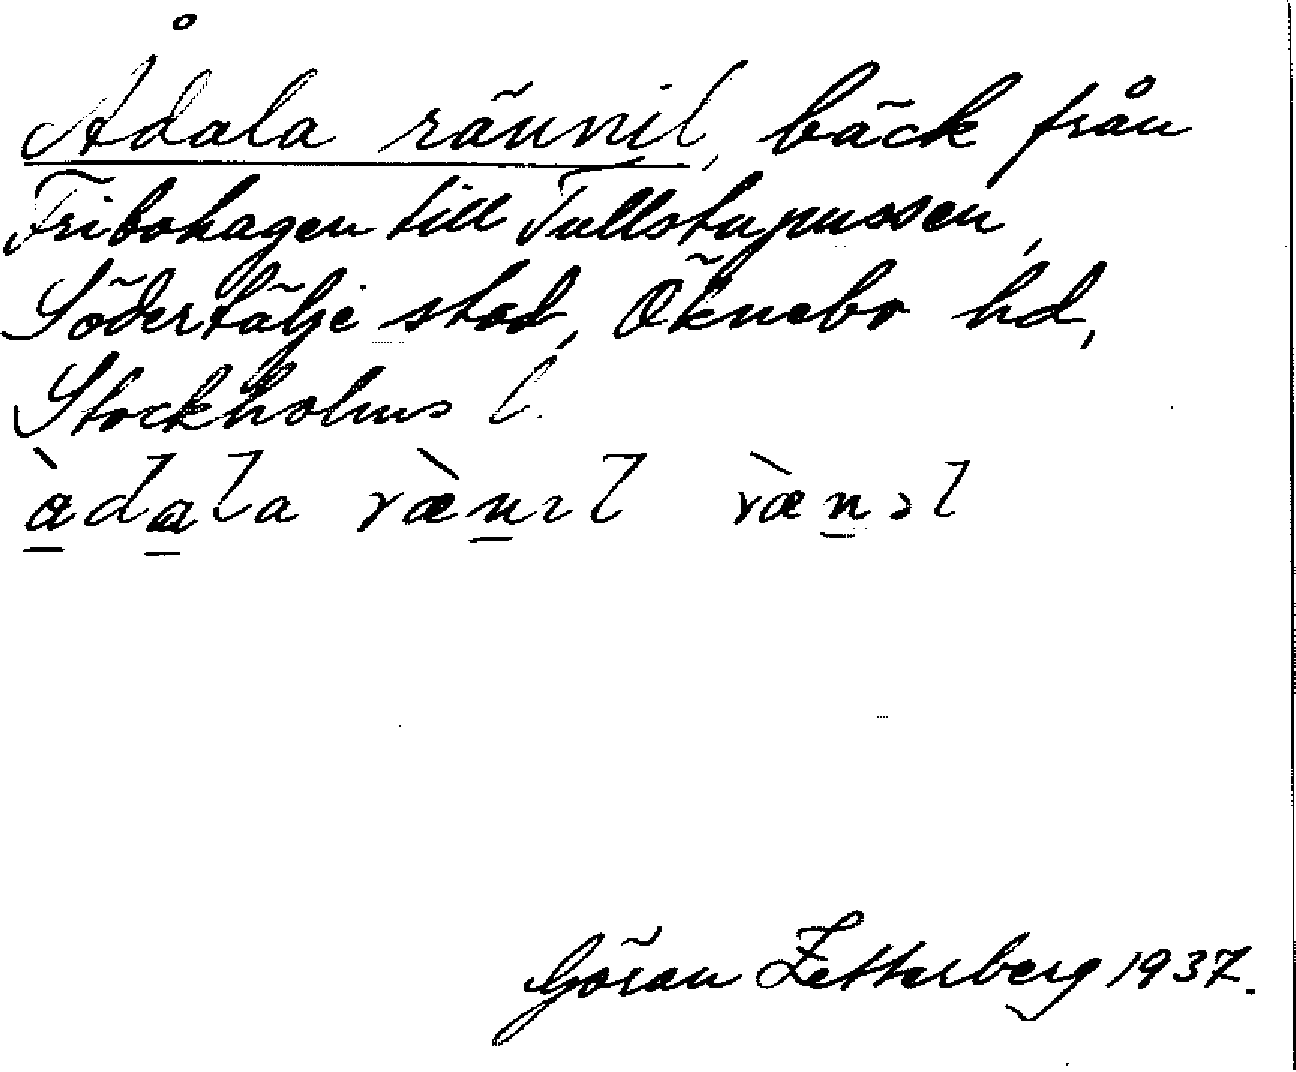 Ådala rännil, bäck från
Fribohagen till Tullstupussen,
Södertälje stad, Öknebo hd,
Stockholms l.
àdala ræ̀nıl ræ̀nəl
Göran Zetterberg 1937.